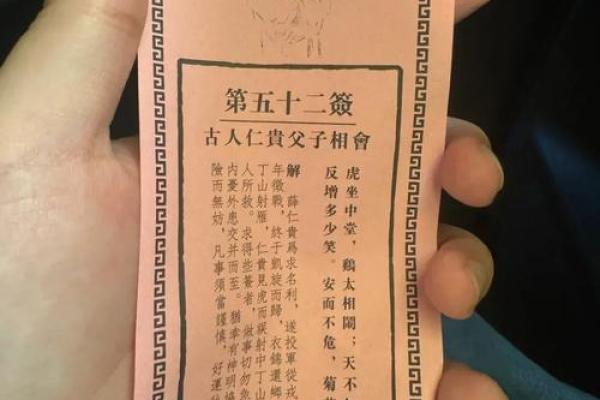 第五十二簽
古人仁貴父子相會
虎坐中堂，鷄太相鬧；天不
反增多少笑。安而不危，菊
解 薛仁貴爲求名利，遂投軍從戎
年徵戰，終于凱旋而歸，衣錦還鄉
丁山射雁，仁貴見虎而誤射中丁山
人所救。求得些簽者，做事切勿魚
内憂外患交并而至。猶幸有神明
險而無妨，凡事須當謹慎，好運